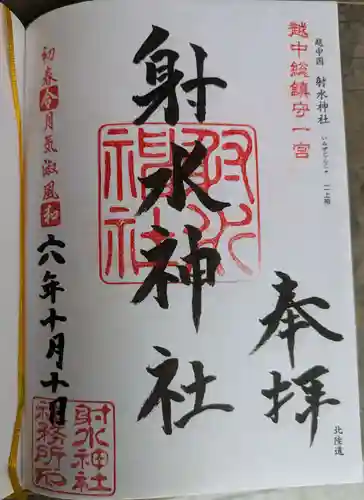 越中国 射水神社
北陸道
越中総鎮守一宮
奉拝
射水神社
射水神社
初春令月気淑風和
六年十月十日
射水神社
社務所印